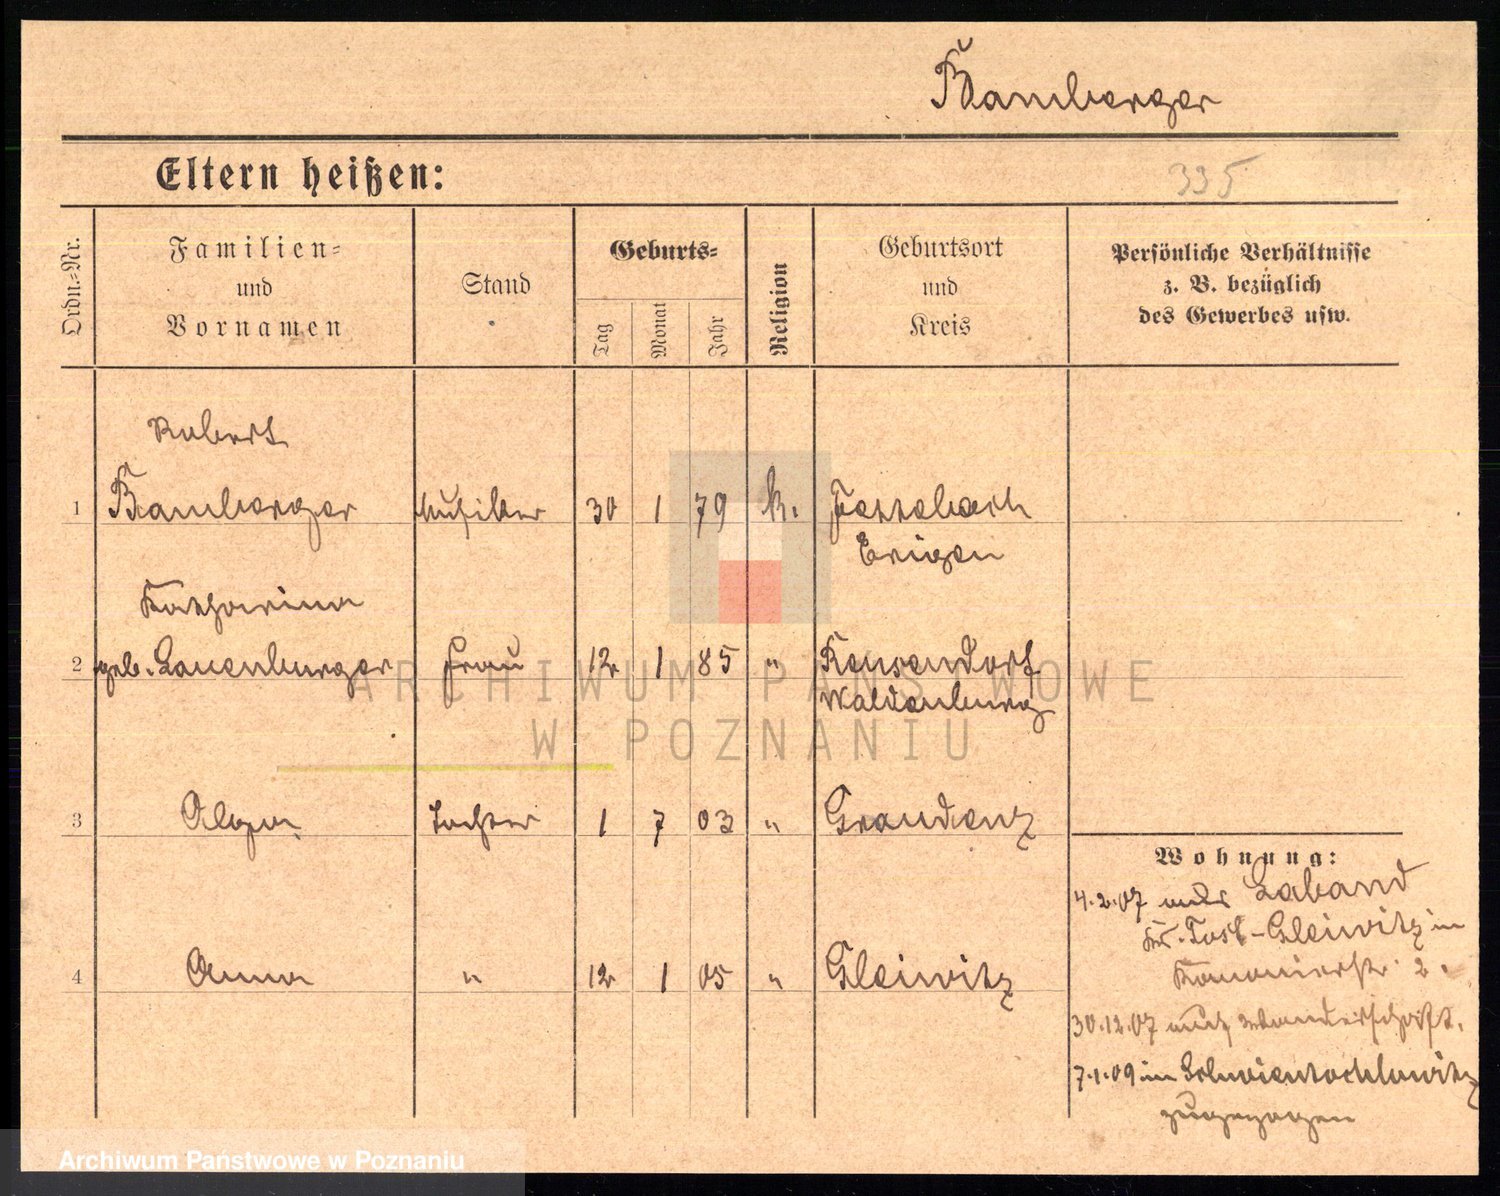 Bamberger
Eltern heißen:
335
Ordn.=Nr.
Familien=
und
Vornamen
Stand
Geburts=
Tag
Monat
Jahr
Religion
Geburtsort
und
Kreis
Persönliche Verhältnisse
z. B. bezüglich
des Gewerbes usw.
Robert
1 Bamberger Musiker 30 1 79 k.
Katharina
2 geb. Lauenburger Frau 12 1 85 "
Waldenburg
3 Tochter 1 7 03 " Graudenz
4 Anna " 12 1 05 " Gleiwitz
Wohnung:
4.2.07 Laband
Kr. Tost-Gleiwitz in
2.
30.12.07 auf Wanderschaft.
7.1.09 in
zugezogen
ARCHIWUM PAŃSTWOWE
W POZNANIU
Archiwum Państwowe w Poznaniu